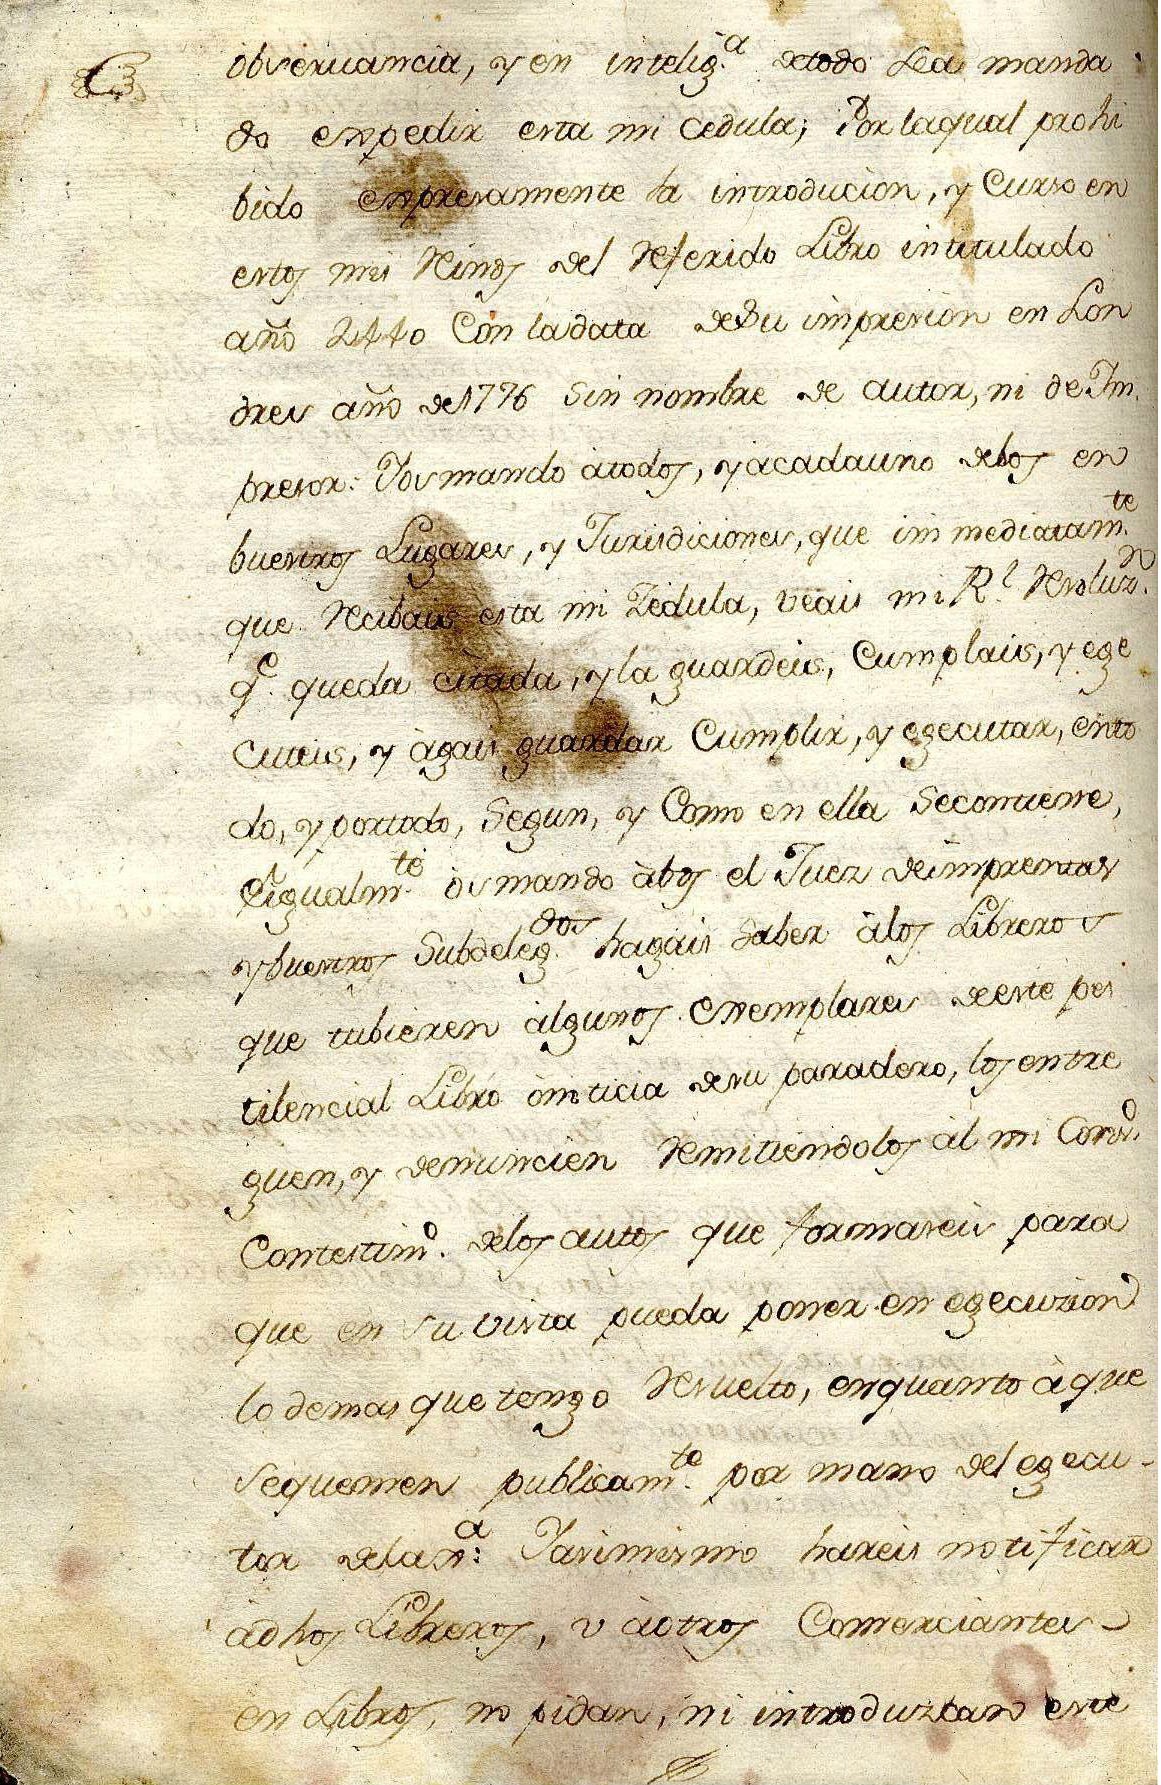 observancia, y en intelig.ª detodo hea manda
do expedir esta mi cedula; Por laqual prohi
bido expresamente la introducion, y Curso en
estos mis Reinos del Referido Libro intitulado
año 2440 Con ladata desu impresion en Lon
dres año de1776 sin nombre de autor, ni de Im
presor: Yos mando atodos, yacadauno delos en
buestros Lugares, y Jurisdiciones, que inmediatam.te
que Recibais esta mi Zedula, veais mi R.l Resoluz.n
q.e queda citada, yla guardeis, Cumplais, y ege
cuteis, y àgais guardar Cumplir, y egecutar, ento
do, y portodo, Segun, y Como en ella secontiene,
Eigualm.te os mando àbos el Juez deimprentas
ybuestros Subdeleg.dos hagais saber àlos Libreros
que tubieren àlgunos exemplares deeste pes
tilencial Libro ònoticia desu paradero, los entre
guen, y denuncien Remitiendolos àl mi Cons.o
Contestim.o delos autos que formareis para
que en su vista pueda poner en egecuzion
lo demas que tengo Resuelto, enquanto àque
sequemen publicam.te por mano del egecu-
tor dela J.ª: Yasimismo hareis notificar
àdhos Libreros, v àotros Comerciantes
en Libros, no pidan, ni introduzcan este